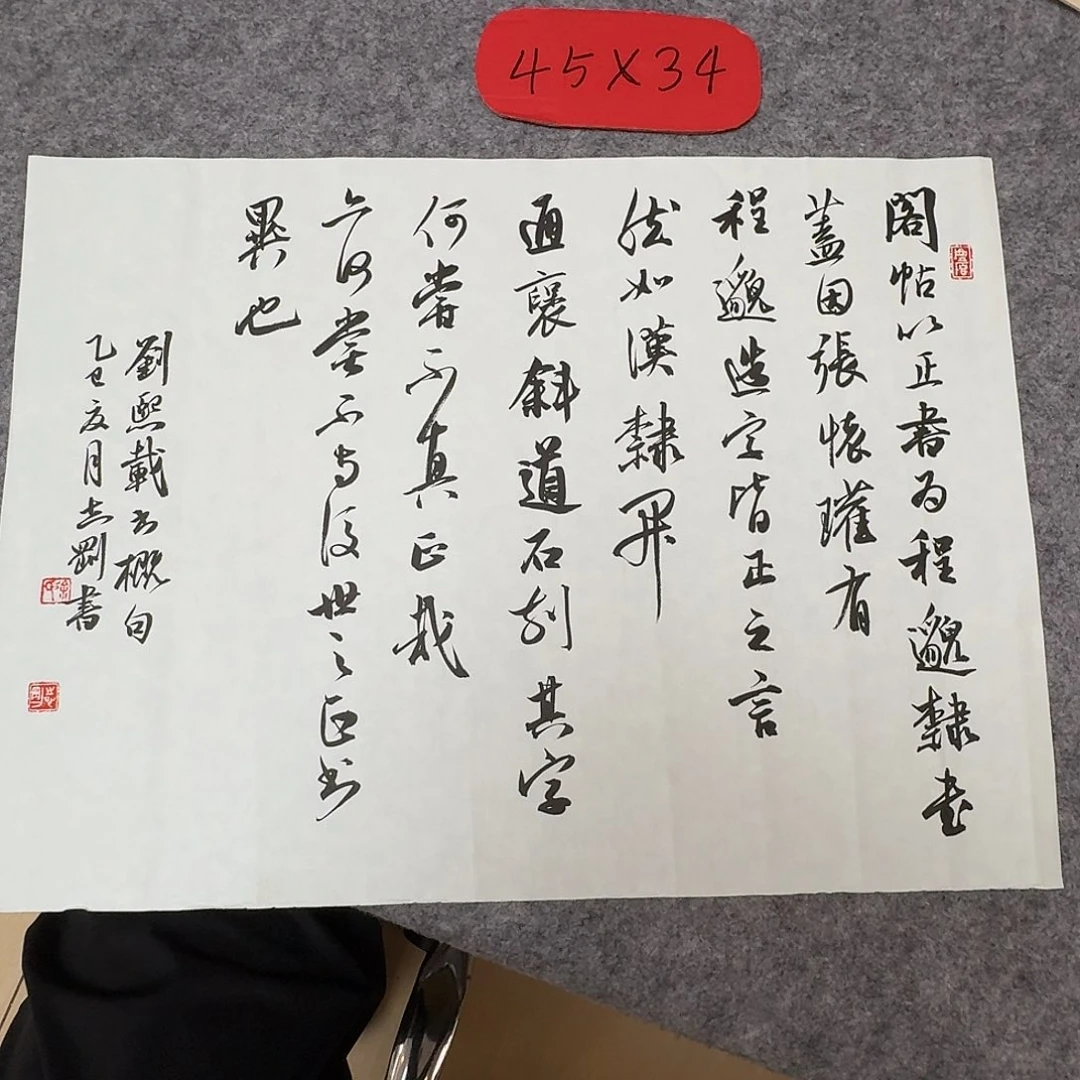 45X34
閣帖以正書为程邈隸書
蓋因張懷瓘有
程邈造字皆正之言
然如漢隸開
通褒斜道石刻其字
何嘗不真正哉
亦何嘗不与後世之正书
異也
劉熙載书概句
乙巳夏月志剛書